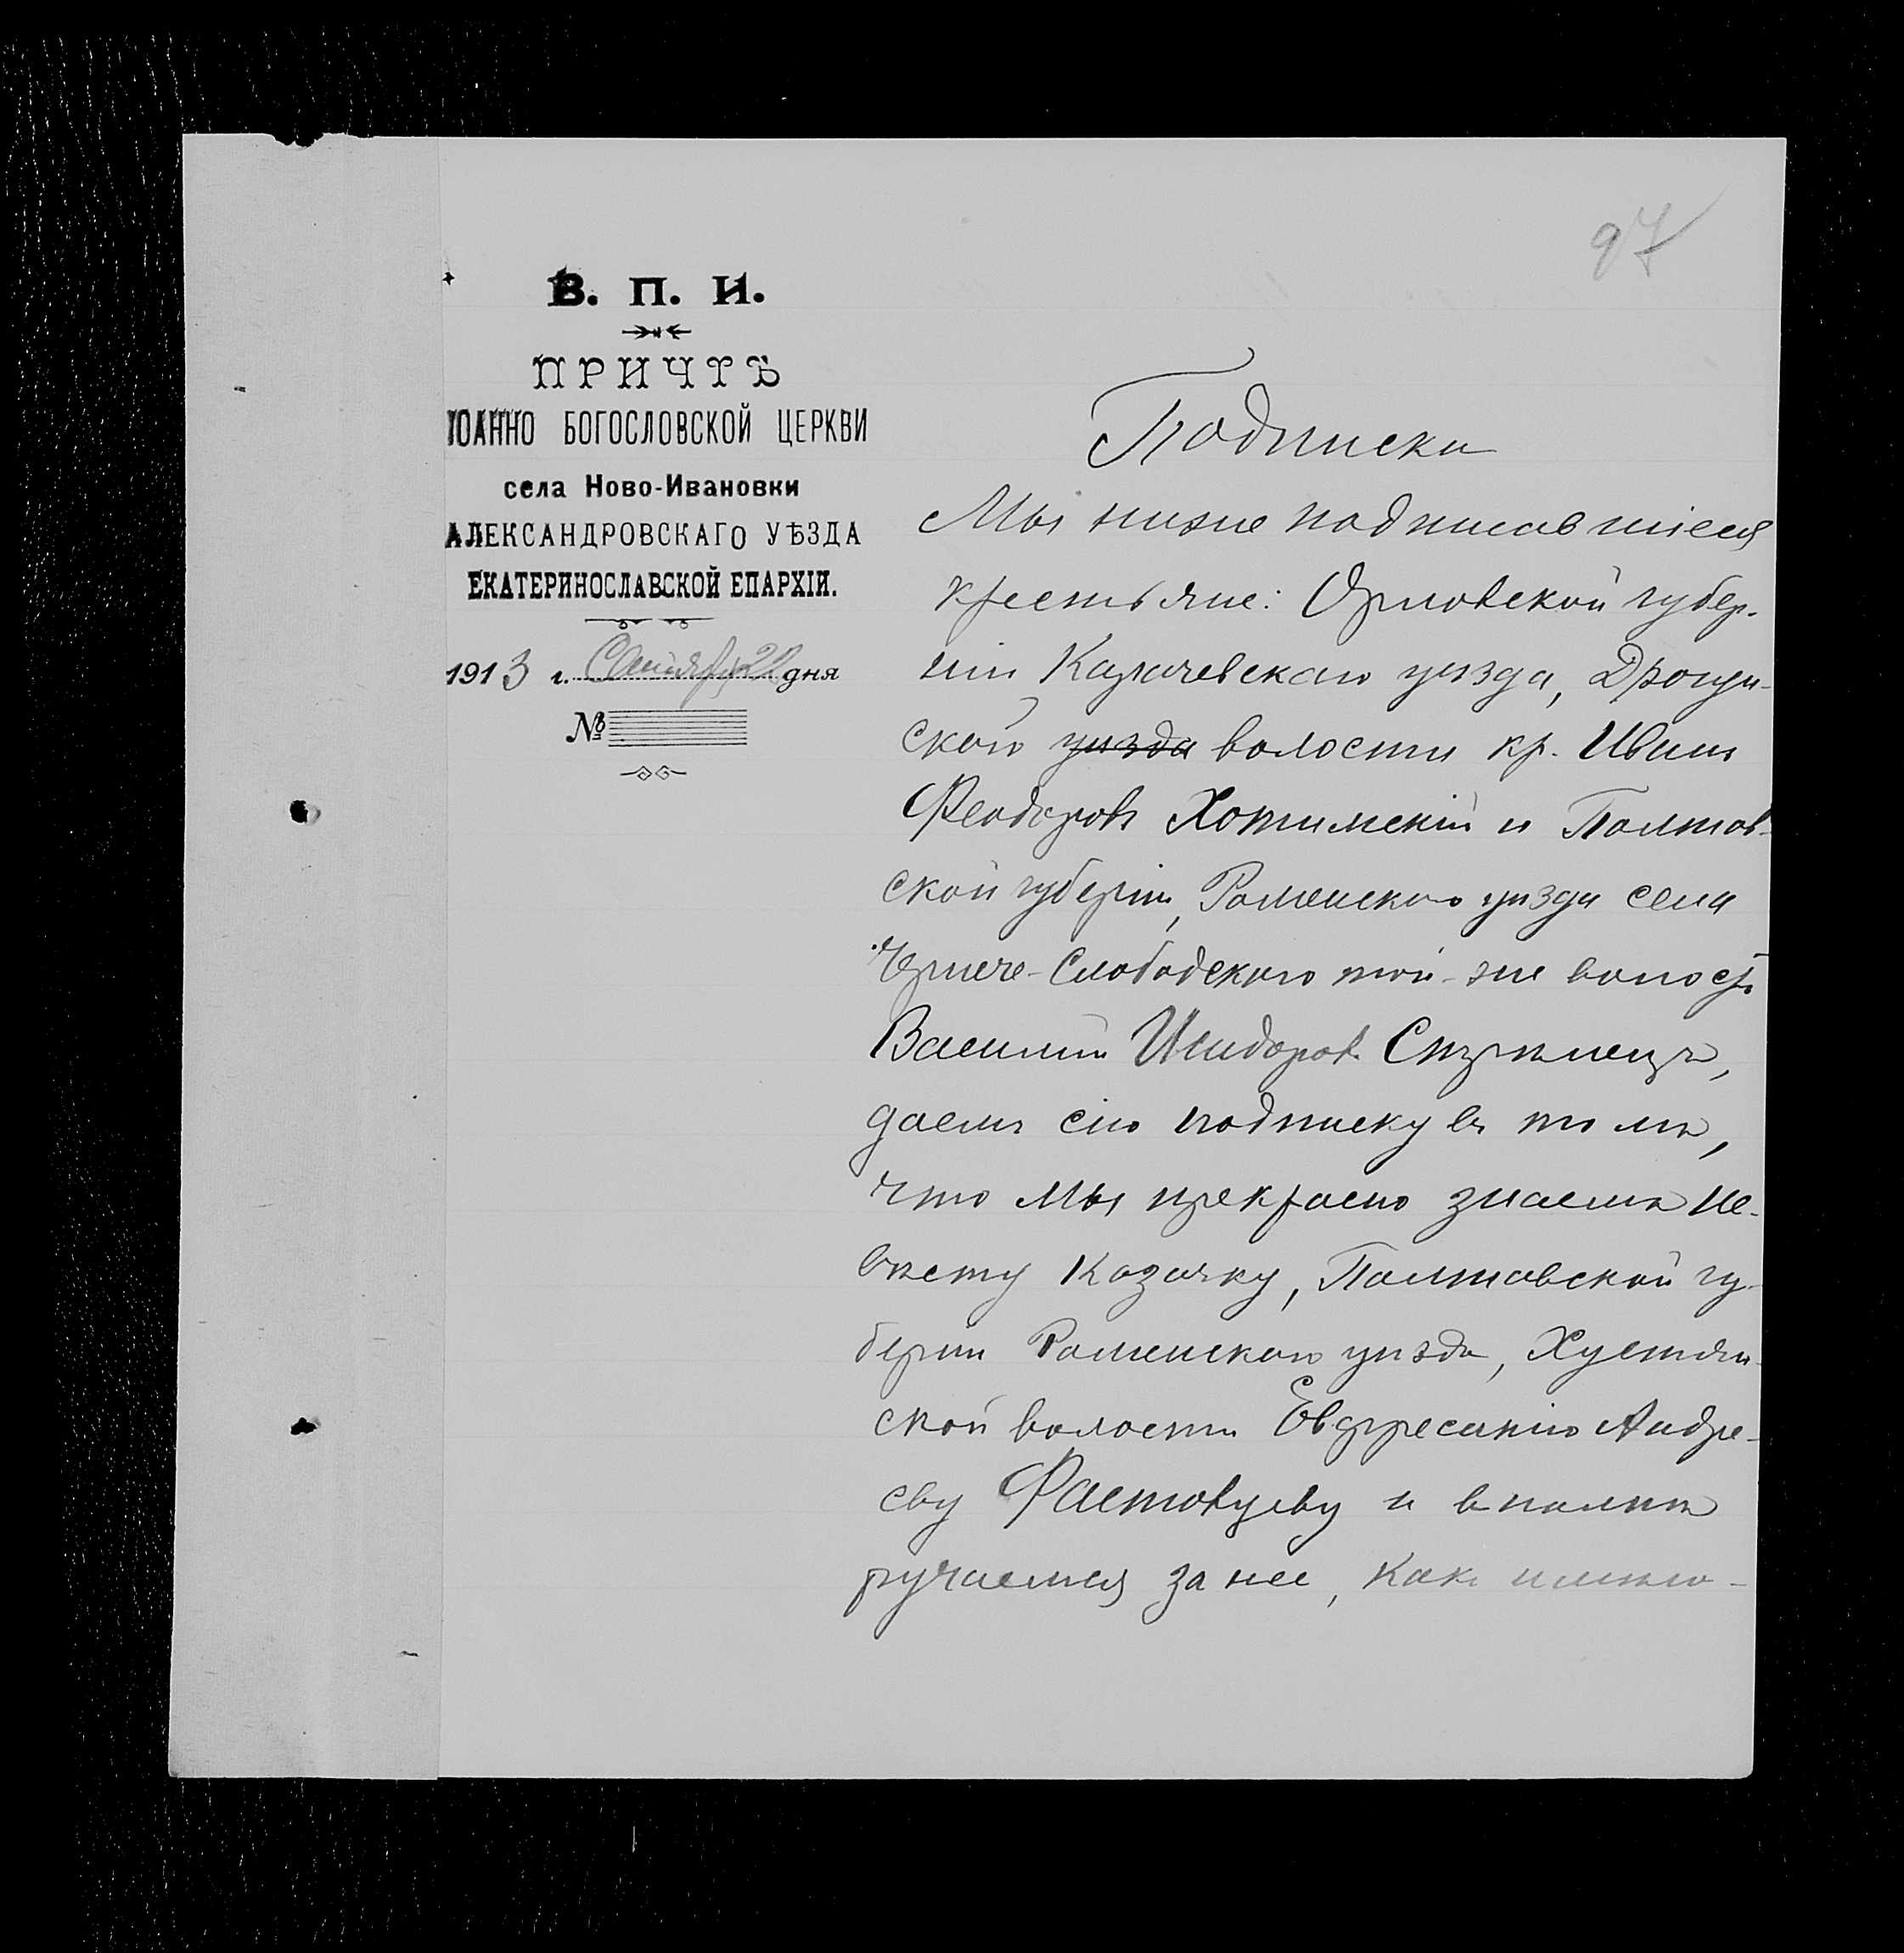 97
В. П. И.
ПРИЧТЪ
ІОАННО БОГОСЛОВСКОЙ ЦЕРКВИ
села Ново-Ивановки
АЛЕКСАНДРОВСКАГО УѢЗДА
ЕКАТЕРИНОСЛАВСКОЙ ЕПАРХІИ.
1913 г. Сентября 22 дня
№
Подписка
Мы ниже подписавшіеся
крестьяне: Орловской губер-
ніи Карачевскаго уѣзда,
скаго уѣзда волости кр. Иванъ
Феодоровъ Хотимскій и Полтав-
ской губерніи, Роменскаго уѣзда села
Чернече-Слободскаго той-же волост.
Василій Исидоровъ
даемъ сію подписку въ томъ,
что мы прекрасно знаемъ не-
вѣсту козачку, Полтавской гу-
берніи Роменскаго уѣзда, Хустян-
ской волости Андре-
еву и вполнѣ
ручаемся за нее, какъ имѣю-